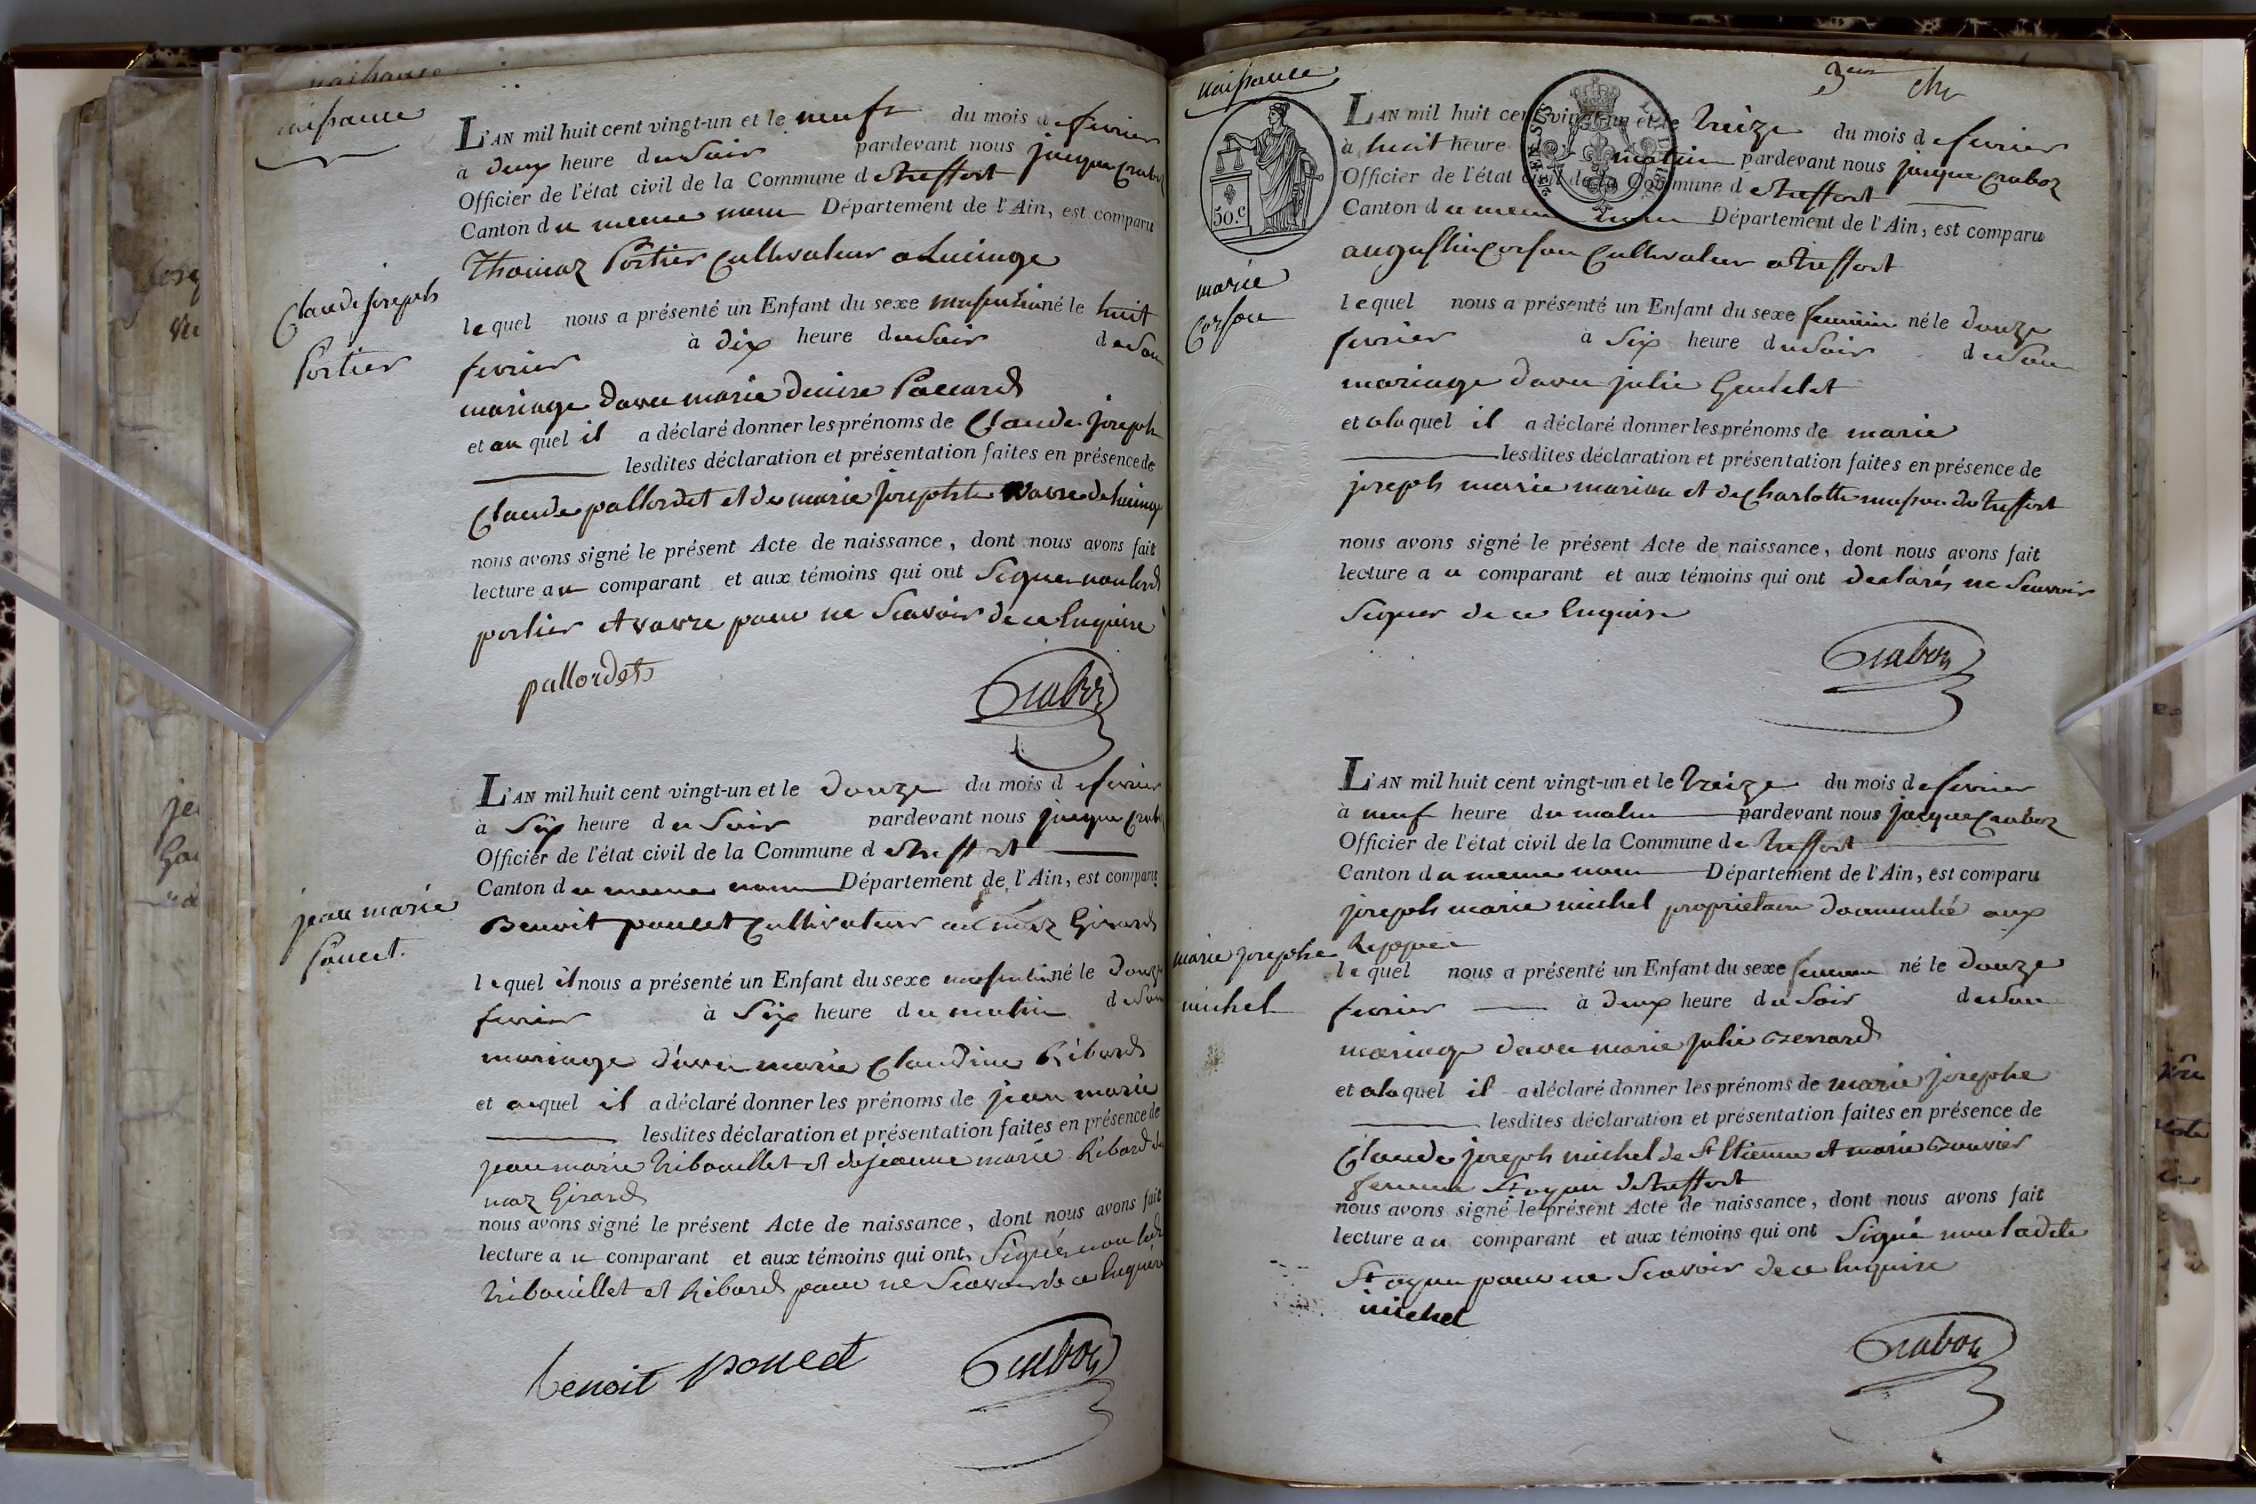 naissance
L'AN mil huit cent vingt-un et le neuf du mois de fevrier
à deux heure du Soir pardevant nous jacque Craboz
Officier de l'état civil de la Commune de treffort
Canton du meme nom Département de l'Ain, est comparu
Thomaz Portier Cultivateur a
Claude joseph
Portier
lequel nous a présenté un Enfant du sexe masculin né le huit
fevrier à dix heure du Soir de Son
mariage davec marie denise Paccard
et au quel il a déclaré donner les prénoms de Claude joseph
lesdites déclaration et présentation faites en présence de
Claude pallordet et de marie josephte vavre de
nous avons signé le présent Acte de naissance, dont nous avons fait
lecture au comparant et aux témoins qui ont Signer non lesd
portier et vavre pour ne Scavoir de ce Enquire
pallordet
Craboz
L'AN mil huit cent vingt-un et le douze du mois de fevrier
à Six heure du Soir pardevant nous jacque Craboz
Officier de l'état civil de la Commune de treffort
Canton du meme nom Département de l'Ain, est comparu
Benoit poncet Cultivateur au maz Girard
jean marie
Poncet.
lequel il nous a présenté un Enfant du sexe masculin né le douze
fevrier à Six heure du matin de Son
mariage d'avec marie Claudine Ribard
et auquel il a déclaré donner les prénoms de jean marie
lesdites déclaration et présentation faites en présence de
jean marie tribouillet et de jeanne marie Ribard du
maz Girard
nous avons signé le présent Acte de naissance, dont nous avons fait
lecture au comparant et aux témoins qui ont Signés non lesd
tribouillet et Ribard pour ne Scavoir de ce Enquire
benoit poncet
Craboz
naissance
50.c
L'AN mil huit cent vingt-un et le treize du mois de fevrier
à huit heure matin pardevant nous jacque Craboz
Officier de l'état civil de la Commune de treffort
Canton du meme nom Département de l'Ain, est comparu
augustin Corson Cultivateur a treffort
marie
Corson
lequel nous a présenté un Enfant du sexe feminin né le douze
fevrier à Six heure du Soir de Son
mariage davec julie Gentelet
et a la quel il a déclaré donner les prénoms de marie
lesdites déclaration et présentation faites en présence de
joseph marie marion et de Charlotte de treffort
nous avons signé le présent Acte de naissance, dont nous avons fait
lecture au comparant et aux témoins qui ont declarés ne Scavoir
Signer de ce Enquire
Craboz
L'AN mil huit cent vingt-un et le treize du mois de fevrier
à neuf heure du matin pardevant nous jacque Craboz
Officier de l'état civil de la Commune de treffort
Canton du meme nom Département de l'Ain, est comparu
joseph marie michel proprietaire aux
marie josephe
michel
lequel nous a présenté un Enfant du sexe feminin né le douze
fevrier à deux heure du Soir de Son
mariage davec marie julie
et a la quel il a déclaré donner les prénoms de marie josephe
lesdites déclaration et présentation faites en présence de
Claude joseph michel de St Etienne et marie
femme St oyan de treffort
nous avons signé le présent Acte de naissance, dont nous avons fait
lecture au comparant et aux témoins qui ont Signé non ladite
St oyan pour ne Scavoir de ce Enquire
michel
Craboz